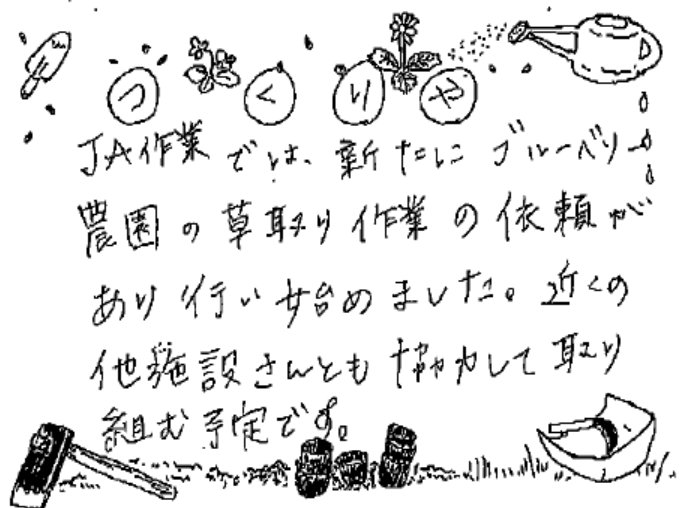 つくりや
JA作業では、新たにブルーベリー
農園の草取り作業の依頼が
あり行い始めました。近くの
他施設さんとも協力して取り
組む予定です。